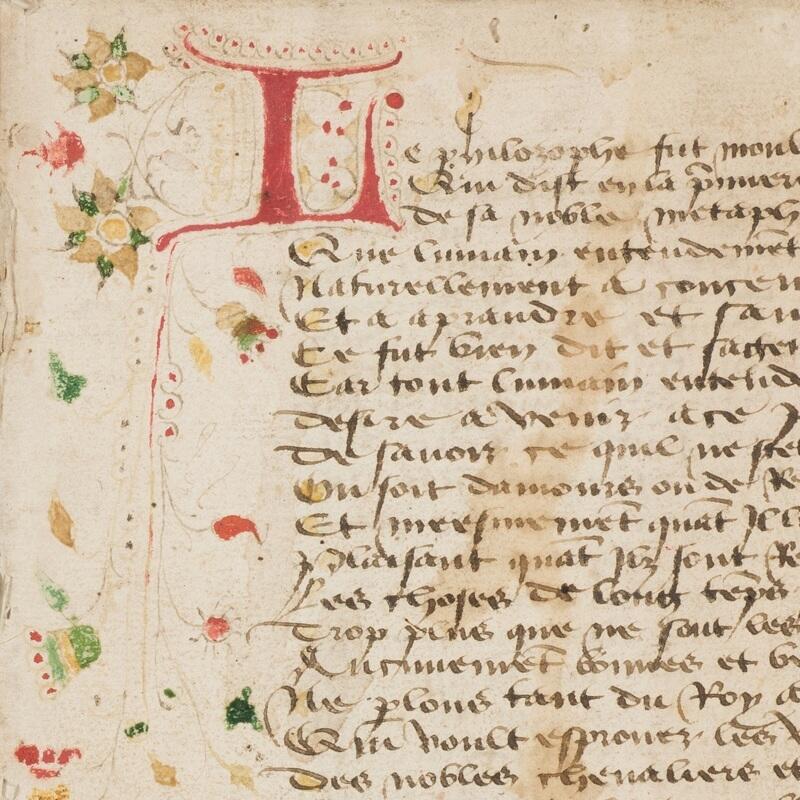 Le philozophe fut moul
Qui dist en la p̄mier
de sa noble metaph
Que lumain entendemēt
Naturellement a concen
Et a aprandre et sau
Ce fut bien dit et saigem
Car tout lumain entend
desire a venir a ce
De sauoir ce quil ne scet
Ou soit damours ou de Re
Et meesmemēt quāt Jl
plaisant quāt Jlz sont Re
Les choses de long tēps
Trop plus que ne sont les
Aucunemēt bonnes et be
Ne plous tant du Roy a
Qui voult esprouer les
Des nobles cheualiers et